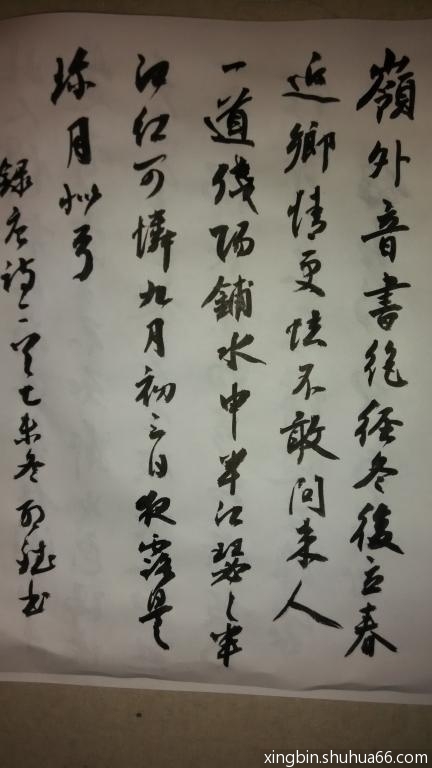 嶺外音書絶經冬後立春
近鄉情更怯不敢問来人
一道残阳鋪水中半江瑟々半
江红可憐九月初三日夜露是
珍月似弓
録唐詩二首乙未冬斌书
xingbin.shuhua66.com